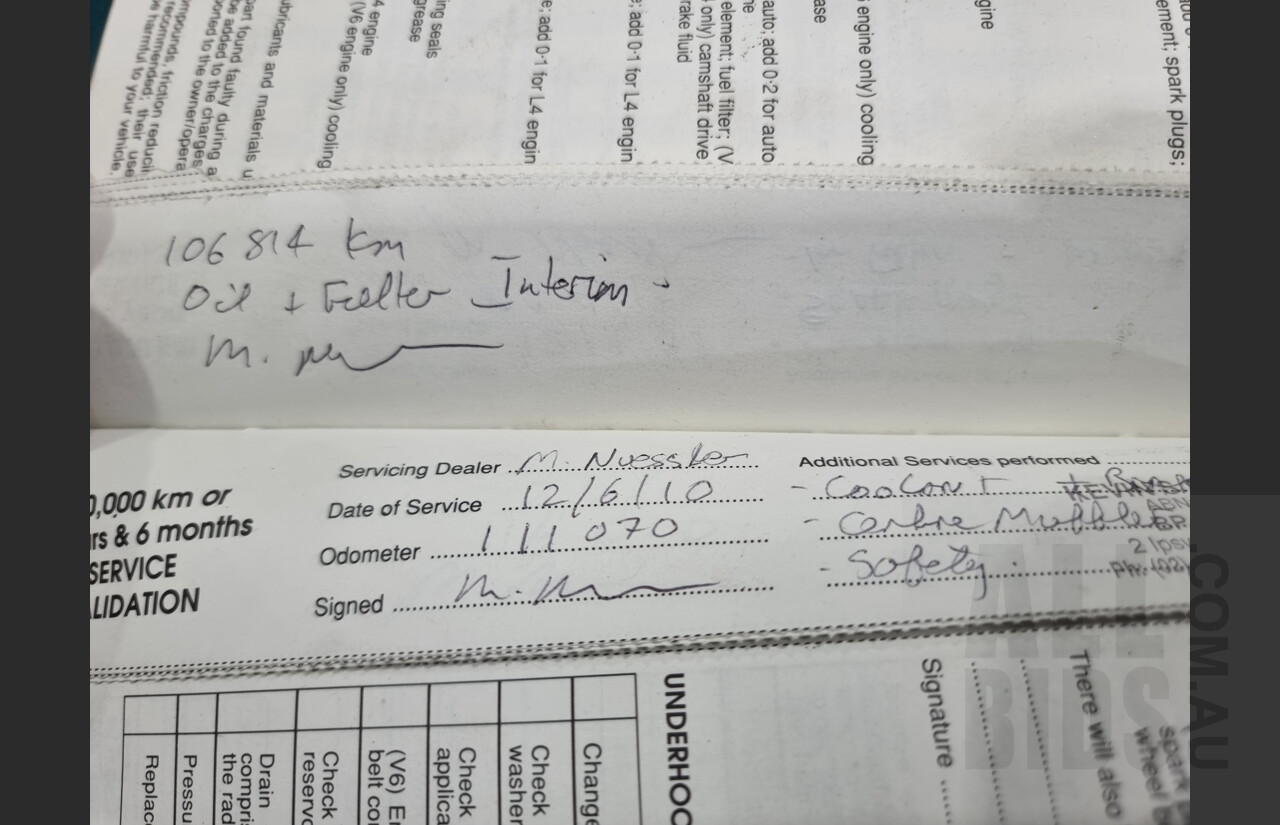 ubricants and materials u
part found faulty during a
be added to the charges
ported to the owner/opera
mpounds, friction reducin
recommended; their use
e harmful to your vehicle.
ing seals
grease
4 engine
(V6 engine only) cooling
e; add 0·1 for L4 engin
e; add 0·1 for L4 engin
auto; add 0·2 for auto
ne
element; fuel filter; (V
only) camshaft drive
rake fluid
ase
engine only) cooling
gine
ement; spark plugs;
106 814 km
Oil + Feelter Interim
M.
0,000 km or
rs & 6 months
SERVICE
LIDATION
Servicing Dealer M. Nuessler
Date of Service 12/6/10
Odometer 111 070
Signed
Additional Services performed
- Coolant
- Centre Muffler
- Safety.
ABN
2 Ips
Ph: (02)
UNDERHOO
Change
Check
washer
Check
applica
(V6) E
belt co
Check
reservo
Drain
compri
the rad
Pressu
Replac
Signature
There will also
spark
wheel
ALL
BIDS
.COM.AU